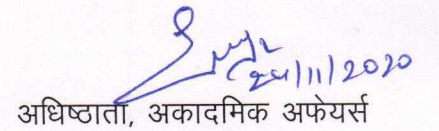 24/11/2020
अधिष्ठाता, अकादमिक अफेयर्स